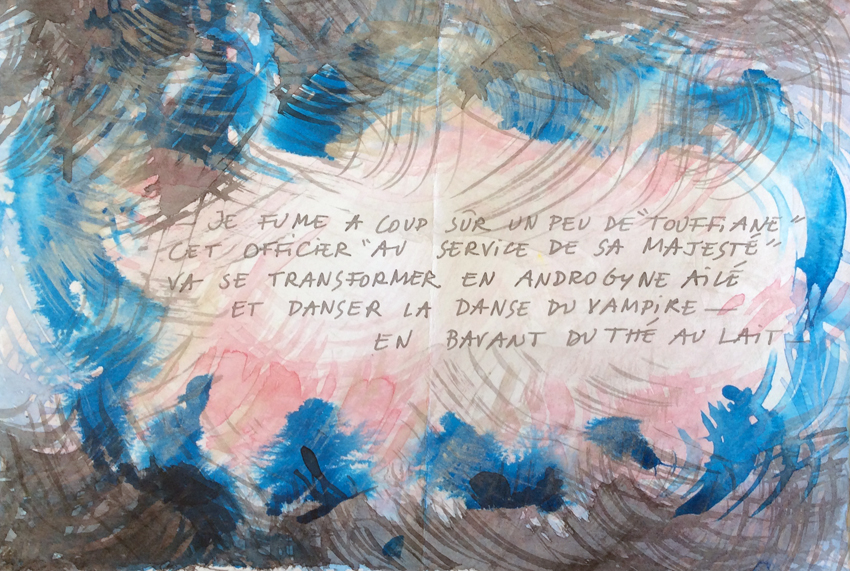 — JE FUME À COUP SÛR UN PEU DE "TOUFFIANE"
CET OFFICIER "AU SERVICE DE SA MAJESTÉ"
VA SE TRANSFORMER EN ANDROGYNE AILÉ
ET DANSER LA DANSE DU VAMPIRE —
EN BAVANT DU THÉ AU LAIT —